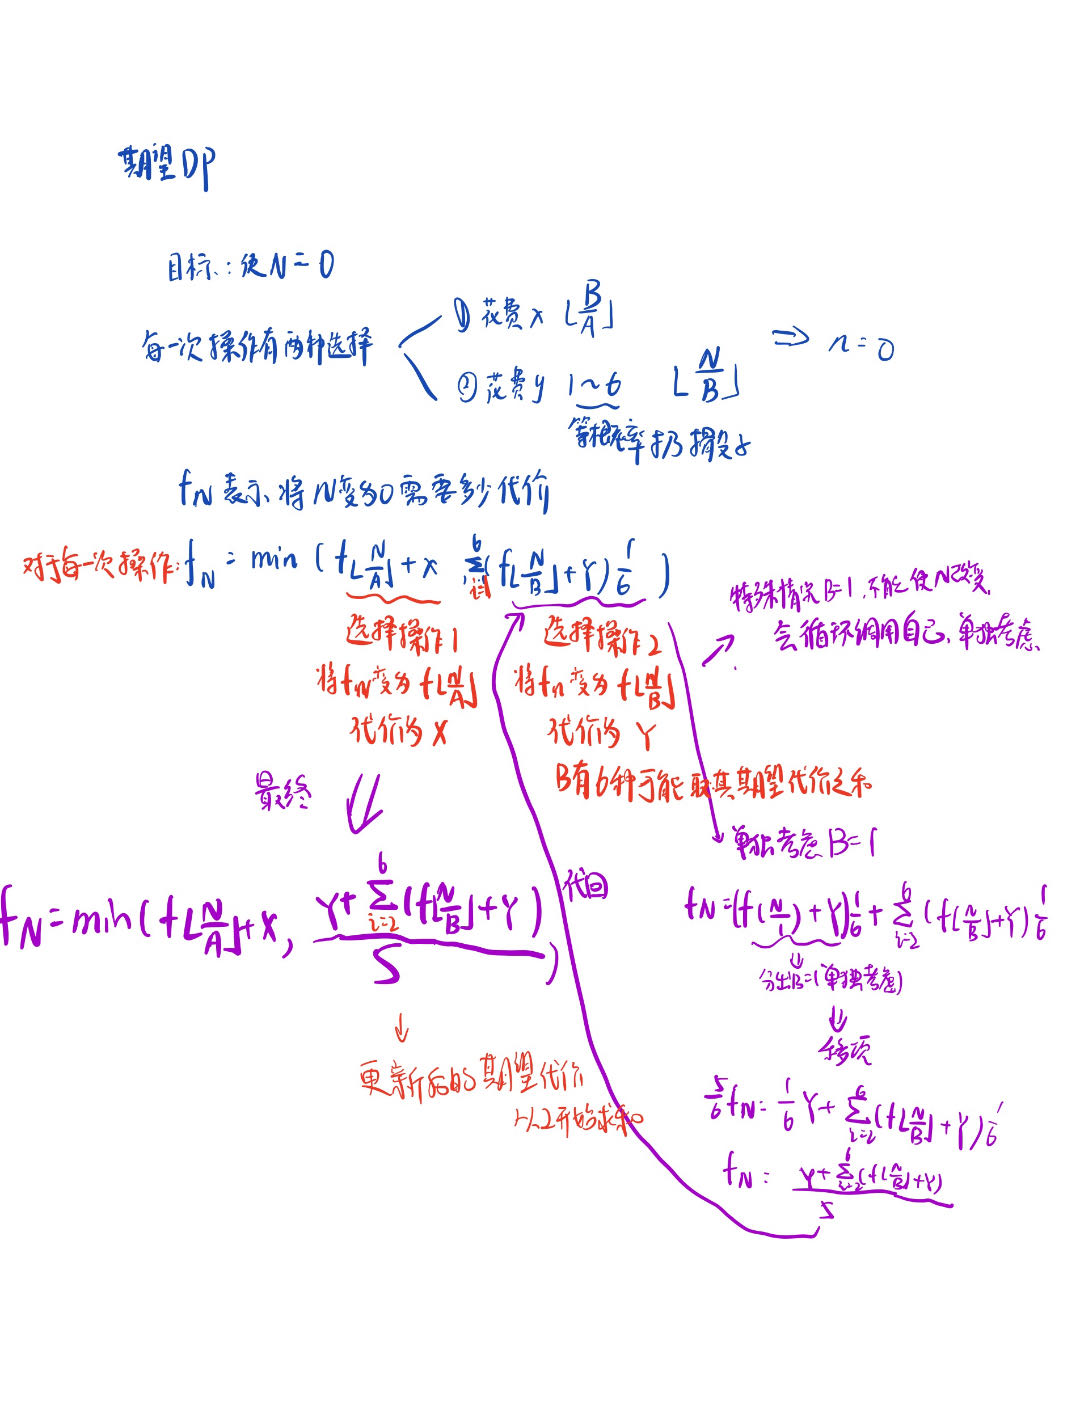 期望DP
目标:使N=0
每一次操作有两种选择
① 花费x ⌊B/A⌋
② 花费y 1~6 ⌊N/B⌋
等概率扔骰子
⇒ n=0
f_N 表示将N变为0需要多少代价
对于每一次操作: f_N = min ( f⌊N/A⌋+x ∑_{i=1}^{6}(f⌊N/B⌋+Y) 1/6 )
选择操作1
将f_N变为 f⌊N/A⌋
代价为 X
选择操作2
将f_n变为 f⌊N/B⌋
代价为 Y
B有6种可能取其期望代价之和
特殊情况B=1,不能使N改变,
会循环调用自己,单独考虑
单独考虑 B=1
f_N=(f(N/1)+Y)1/6 + ∑_{i=2}^{6}(f⌊N/B⌋+Y)1/6
分出B=1(单独考虑)
移项
5/6 f_N = 1/6 Y + ∑_{i=2}^{6}(f⌊N/B⌋+Y)1/6
f_N = (Y+∑_{i=2}^{6}(f⌊N/B⌋+Y))/5
代回
最终
f_N=min(f⌊N/A⌋+X, (Y+∑_{i=2}^{6}(f⌊N/B⌋+Y))/5)
更新后的期望代价
从2开始求和